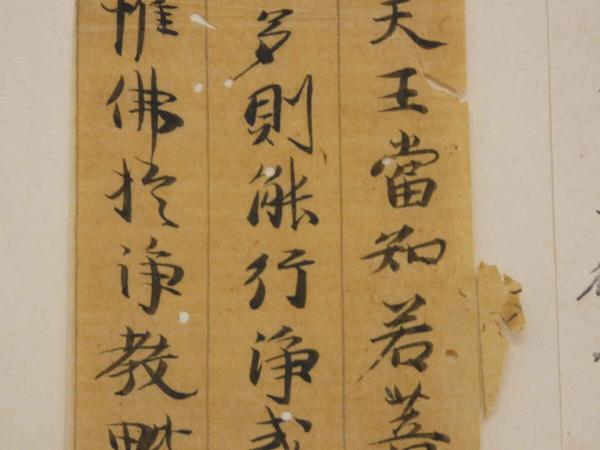 天王當知若菩
多則能行淨戒
惟佛於淨教